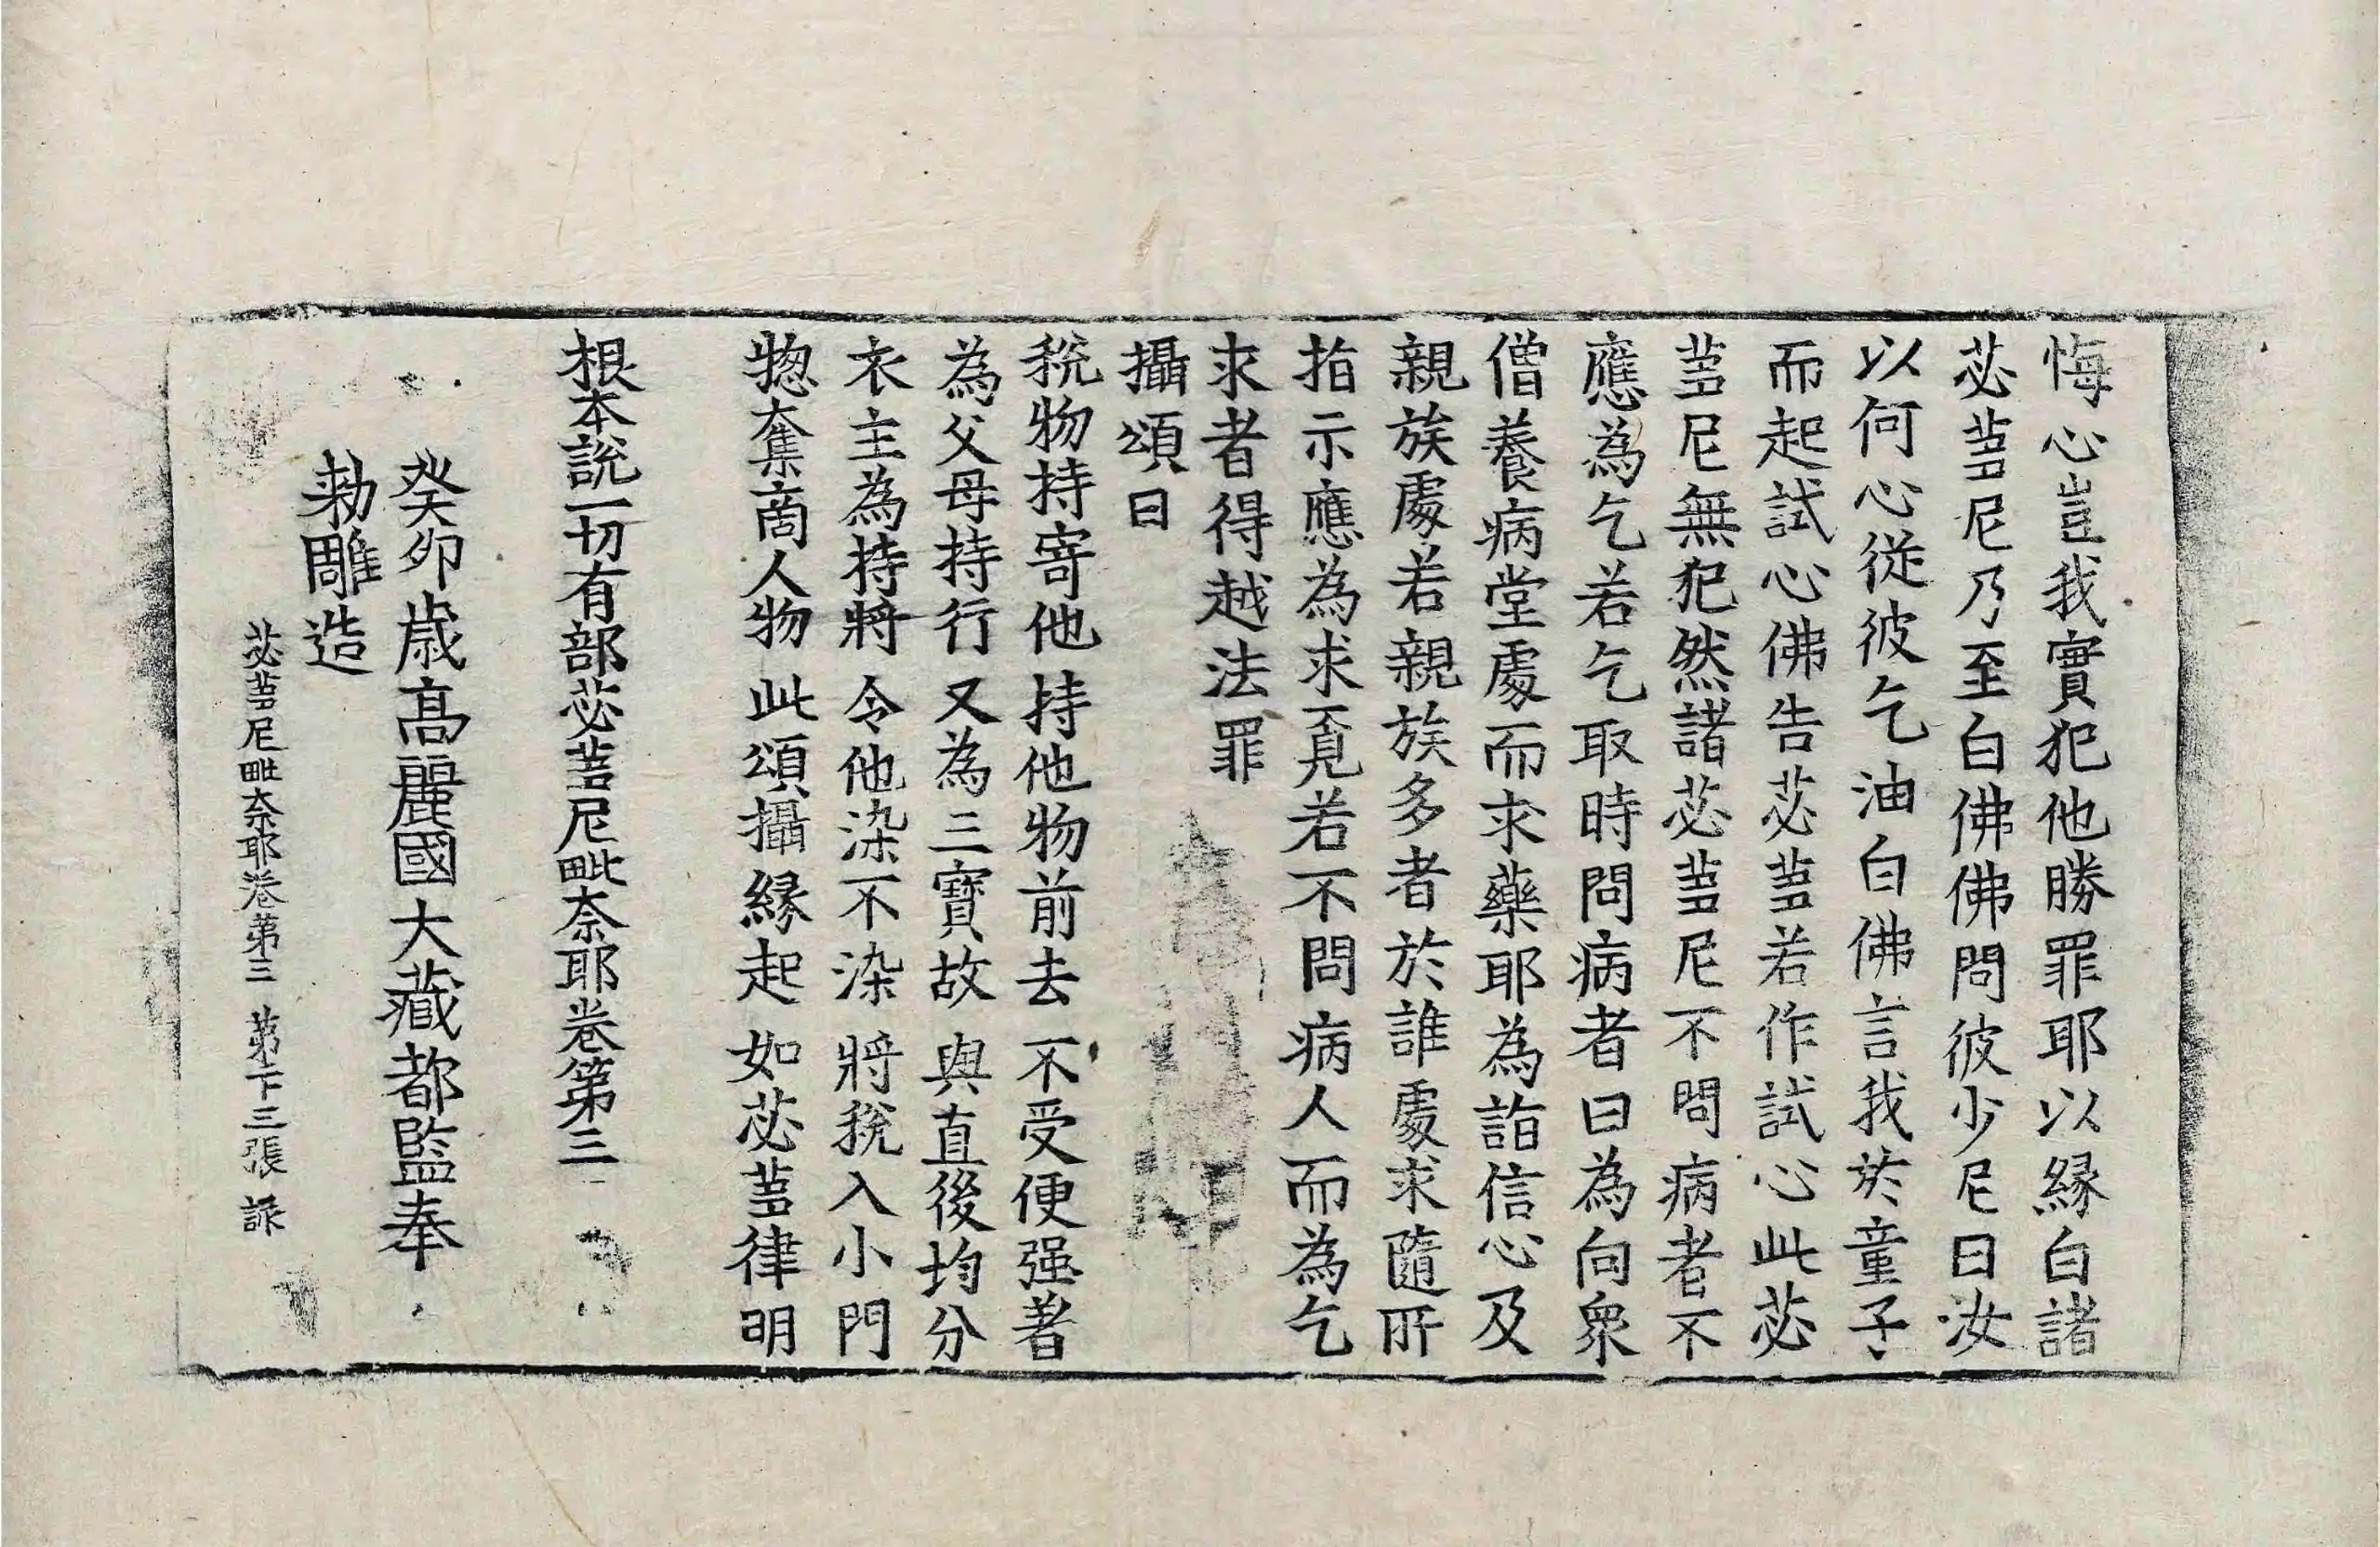 悔心豈我實犯他勝罪耶以縁白諸
苾蒭尼乃至白佛佛問彼少尼曰汝
以何心從彼乞油白佛言我於童子
而起試心佛告苾蒭若作試心此苾
蒭尼無犯然諸苾蒭尼不問病者不
應為乞若乞取時問病者曰為向衆
僧養病堂處而求藥耶為詣信心及
親族處若親族多者於誰處求隨所
指示應為求覓若不問病人而為乞
求者得越法罪
攝頌曰
稅物持寄他 持他物前去 不受便强著
為父母持行 又為三寶故 與直後均分
衣主為持將 令他染不染 將稅入小門
惣奪商人物 此頌攝縁起 如苾蒭律明
根本說一切有部苾蒭尼毗奈耶卷第三
癸卯歳高麗國大藏都監奉
勅雕造
苾蒭尼毗奈耶卷第三 第二十三張